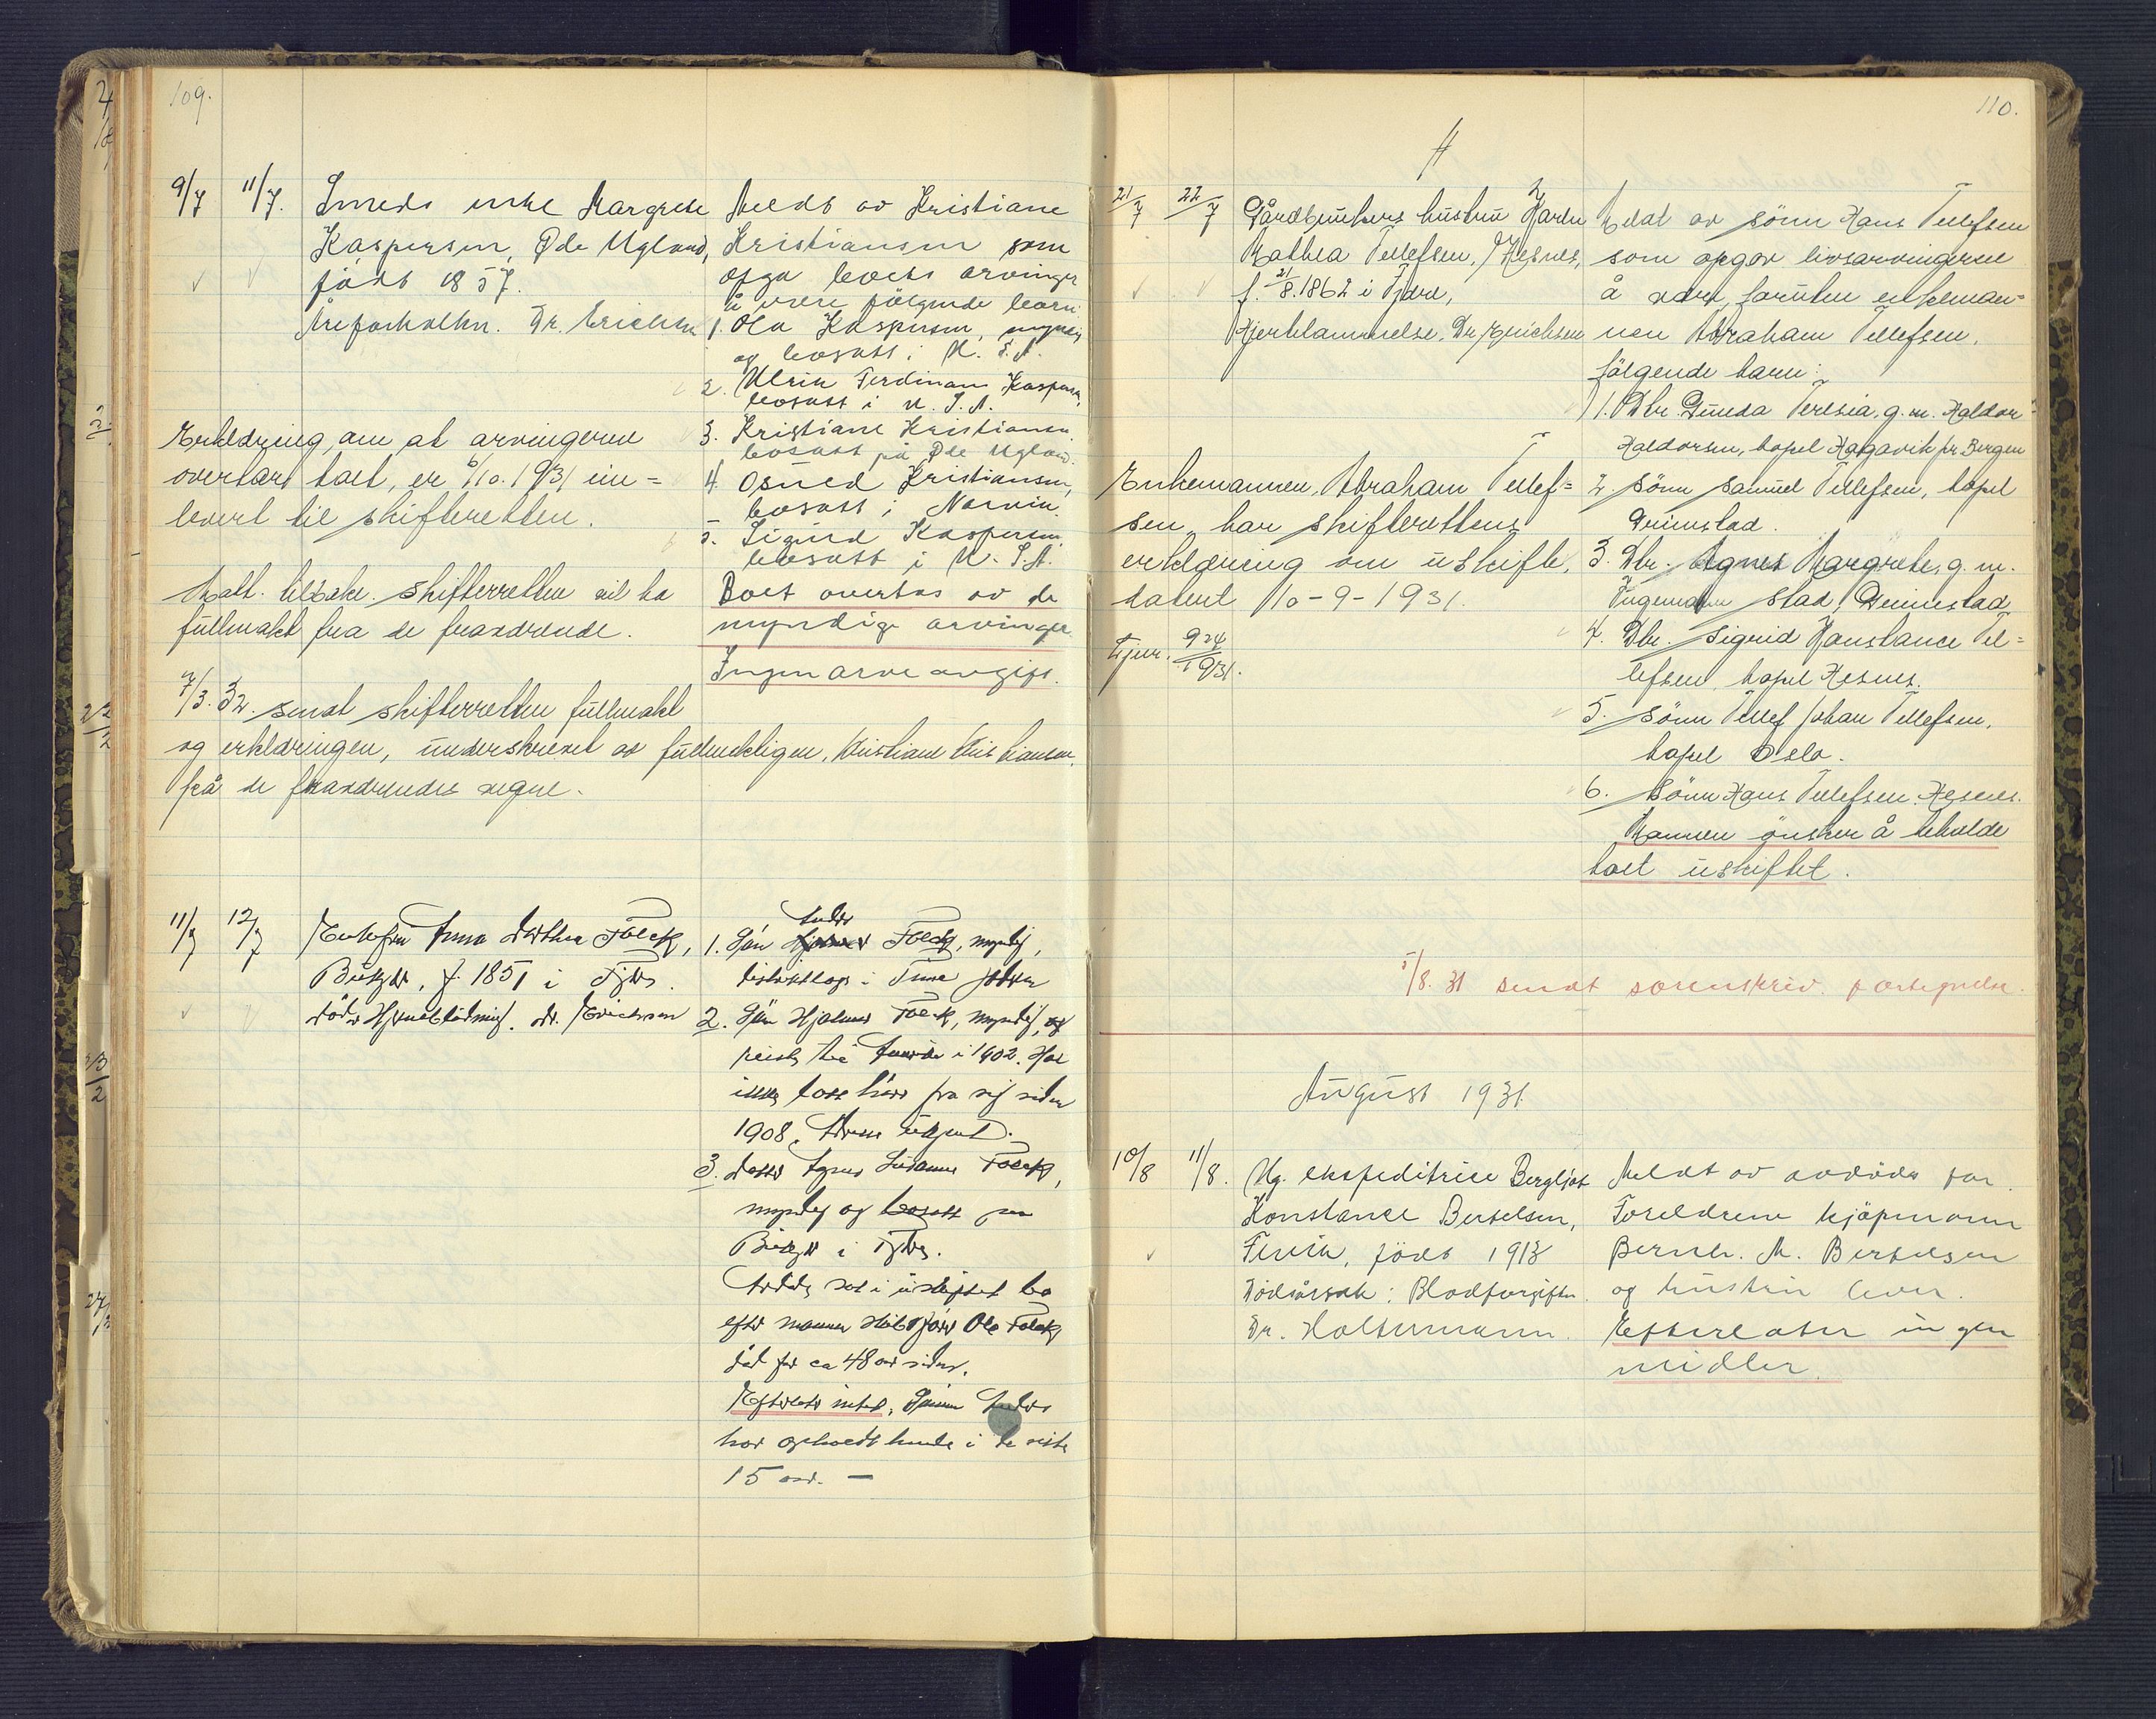 109.
9/7 11/7. Smeds enke Margrete
Kaspersen, Øde Ugland,
født 1857.
Åreforkalkn. Dr. Erichsen
Meldt av Kristiane
Kristiansen som
opga boets arvinger
å være følgende barn:
1. Ola Kaspersen, myndig
og bosatt i U.S.A.
2. Ulrik Ferdinant Kaspersen,
bosatt i U.S.A.
3. Kristiane Kristiansen
bosatt på Øde Ugland.
4. Osued Kristiansen,
bosatt i Narvik.
5. Sigurd Kaspersen,
bosatt i U.S.A.
Boet overtas av de
myndige arvinger.
Ingen arve avgift.
Erklæring, om at arvingerne
overtar boet, er 6/10. 1931 inn=
levert til skifteretten.
Mott. tilbake. Skifterretten vil ha
fullmakt fra de fraværende.
7/3. 32. sendt skifterretten fullmakt
og erklæringen, underskrevet av fullmektigen, Kristiane Kristiansen,
på de fraværendes vegne.
11/7 12/7 Enkefru Anna Dorthea Foeck,
f. 1851 i Fjære.
død av Hjerneblødning. dr. Erichsen
1. Søn Anders Foeck, myndig,
i
2. Søn Hjalmar Foeck, myndig, og
reiste til Amerika i 1902. Har
ikke latt høre fra sig siden
1908. Adresse ukjent.
3. Datter Agnes Susanne Foeck,
myndig og bosatt paa
i Fjære.
Avdøde sat i uskiftet bo
efter mannen Ole Foeck
død for ca 48 aar siden.
Efterlater intet. Sønnen Anders
har opholdt hende i de siste
15 aar. —
110.
21/7 22/7 Gårdbrukers hustru Karen
Mathea Tellefsen, Hesnes,
f. 21/8. 1862 i Fjære,
Hjertelammelse. Dr. Erichsen
Meldt av sønn Hans Tellefsen
som opgav livsarvingerne
å være, foruten enkeman=
nen Abraham Tellefsen,
følgende barn:
1. Dtr. Gunda Teresia, g. m. Haldor
Haldorsen, bopel Hagavik pr Bergen
2. Sønn Samuel Tellefsen, bopel
Grimstad.
3. Dtr. Agnes Margrete, g. m.
Ingemann Stad, Grimstad,
4. Dtr. Sigrid Konstance Tel=
lefsen, bopel Hesnes.
5. Sønn Tellef Johan Tellefsen,
bopel Oslo.
6. Sønn Hans Tellefsen, Hesnes.
Mannen ønsker å beholde
boet uskiftet.
Enkemannen, Abraham Tellef=
sen, har skifterettens
erklæring om uskifte,
datert 10-9-1931.
Tjnr. 924/1931.
5/8. 31 sendt sorenskriv. fortegnelse.
August 1931
10/8 11/8. Ug. ekspeditrise Bergljot
Konstance Bertelsen,
Fevik, født 1913
Dødsårsak: Blodforgiftn.
Dr. Holtermann.
Meldt av avdødes far.
Foreldrene kjøpmann
Bernh. M. Bertelsen
og hustru lever.
Efterlater ingen
midler.